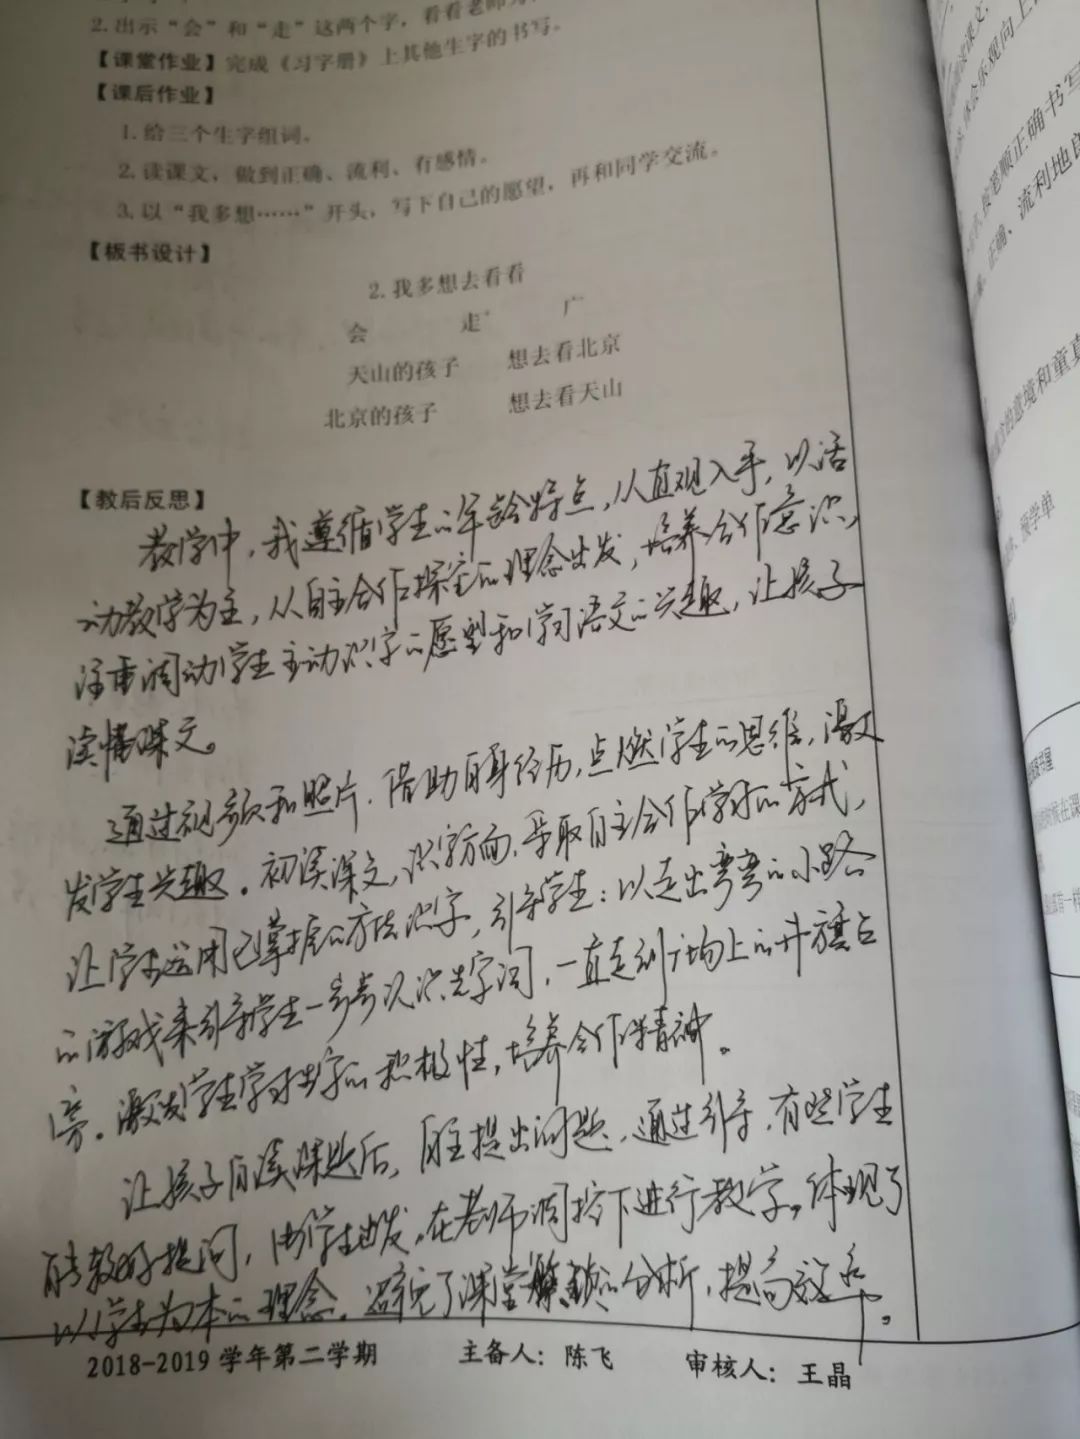 2.出示“会”和“走”这两个字，看看老师
【课堂作业】完成《习字册》上其他生字的书写。
【课后作业】
1.给三个生字组词。
2.读课文，做到正确、流利、有感情。
3.以“我多想……”开头，写下自己的愿望，再和同学交流。
【板书设计】
2.我多想去看看
会 走 广
天山的孩子 想去看北京
北京的孩子 想去看天山
【教后反思】
教学中，我遵循学生的年龄特点，从直观入手，以活
动教学为主，从自主合作探究的理念出发，培养合作意识，
注重调动学生主动识字的愿望和学习语文的兴趣，让孩子
读懂课文。
通过视频和照片，借助自身经历，点燃学生的思维，激
发学生兴趣。初读课文，识字方面，采取自主合作学习的方式，
让学生运用已掌握的方法识字，引导学生：以走出弯弯的小路
的游戏来引导学生一步步认识生字词，一直走到广场上的升旗台
旁。激发学生学习生字的积极性，培养合作精神。
让孩子自读课题后，自主提出问题，通过引导，有些学生
能较好提问，由学生出发，在老师调控下进行教学。体现了
以学生为本的理念，避免了课堂繁琐的分析，提高效率。
2018-2019 学年第二学期 主备人：陈飞 审核人：王晶
体会乐观向上
按笔顺正确书写
正确、流利地
的意境和童真
预学单